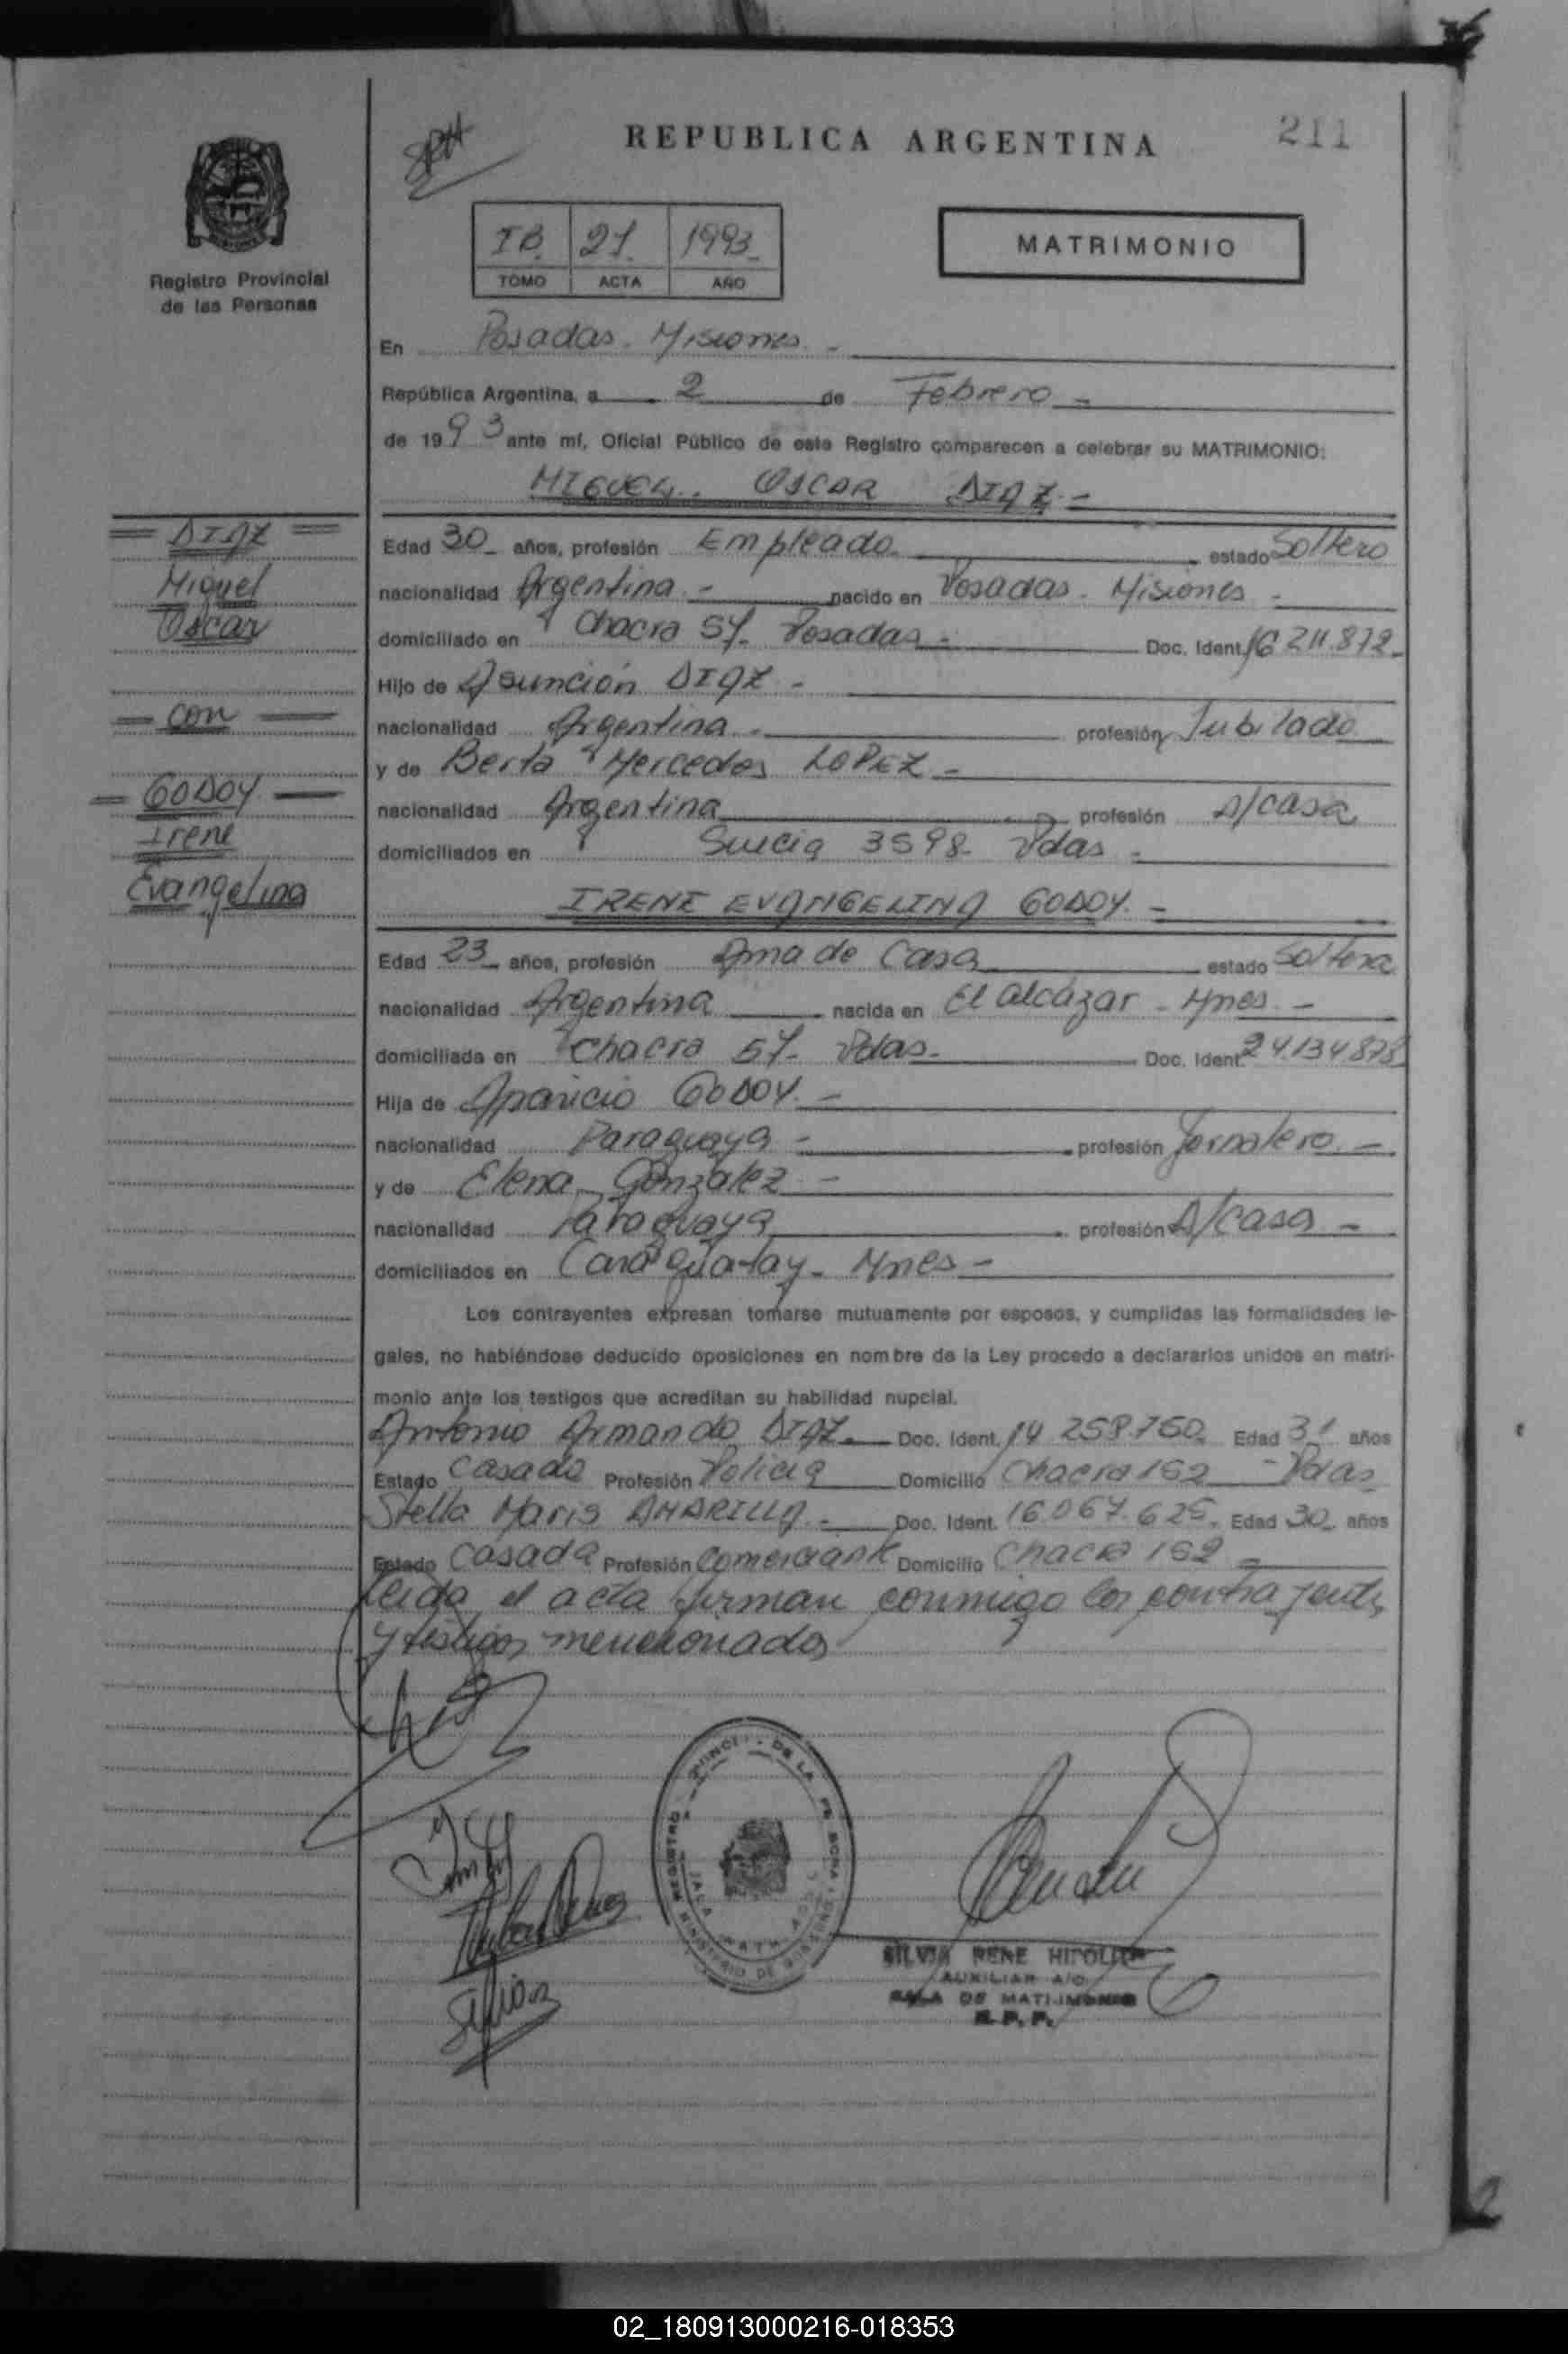 REPUBLICA ARGENTINA
211
Registro Provincial
de las Personas
IB. 21. 1993.
TOMO ACTA AÑO
MATRIMONIO
En Posadas. Misiones. -
República Argentina, a 2 de Febrero -
de 1993 ante mí, Oficial Público de este Registro comparecen a celebrar su MATRIMONIO:
MIGUEL OSCAR DIAZ -
= DIAZ =
Miguel
Oscar
- con -
= GODOY -
Irene
Evangelina
Edad 30 años, profesión Empleado estado Soltero
nacionalidad Argentina - nacido en Posadas - Misiones -
domiciliado en Chacra 57. Posadas - Doc. Ident. 16 211.872
Hijo de Asunción DIAZ -
nacionalidad Argentina - profesión Jubilado
y de Berta Mercedes LOPEZ -
nacionalidad Argentina profesión A/casa
domiciliados en Suecia 3598 Pdas -
IRENE EVANGELINA GODOY. -
Edad 23 años, profesión Ama de Casa estado Soltera
nacionalidad Argentina nacida en El alcázar - Mnes -
domiciliada en Chacra 57- Pdas. Doc. Ident. 24.134.878
Hija de Aparicio GODOY. -
nacionalidad Paraguaya - profesión Jornalero. -
y de Elena González -
nacionalidad Paraguaya profesión A/casa -
domiciliados en Caraguatay - Mnes -
Los contrayentes expresan tomarse mutuamente por esposos, y cumplidas las formalidades le-
gales, no habiéndose deducido oposiciones en nombre de la Ley procedo a declararlos unidos en matri-
monio ante los testigos que acreditan su habilidad nupcial.
Antonio Armando DIAZ. Doc. Ident. 14 258.760 Edad 31 años
Estado Casado Profesión Policia Domicilio Chacra 152 - Pdas
Stella Maris AMARILLA. - Doc. Ident. 16.067.625. Edad 30 años
Estado Casada Profesión Comerciante Domicilio Chacra 152 -
Leida el acta firman conmigo los contrayentes
y testigos mencionados
SILVIA RENE HIPOLITO
AUXILIAR A/C
SALA DE MATRIMONIO
R. P. P.
02_180913000216-018353